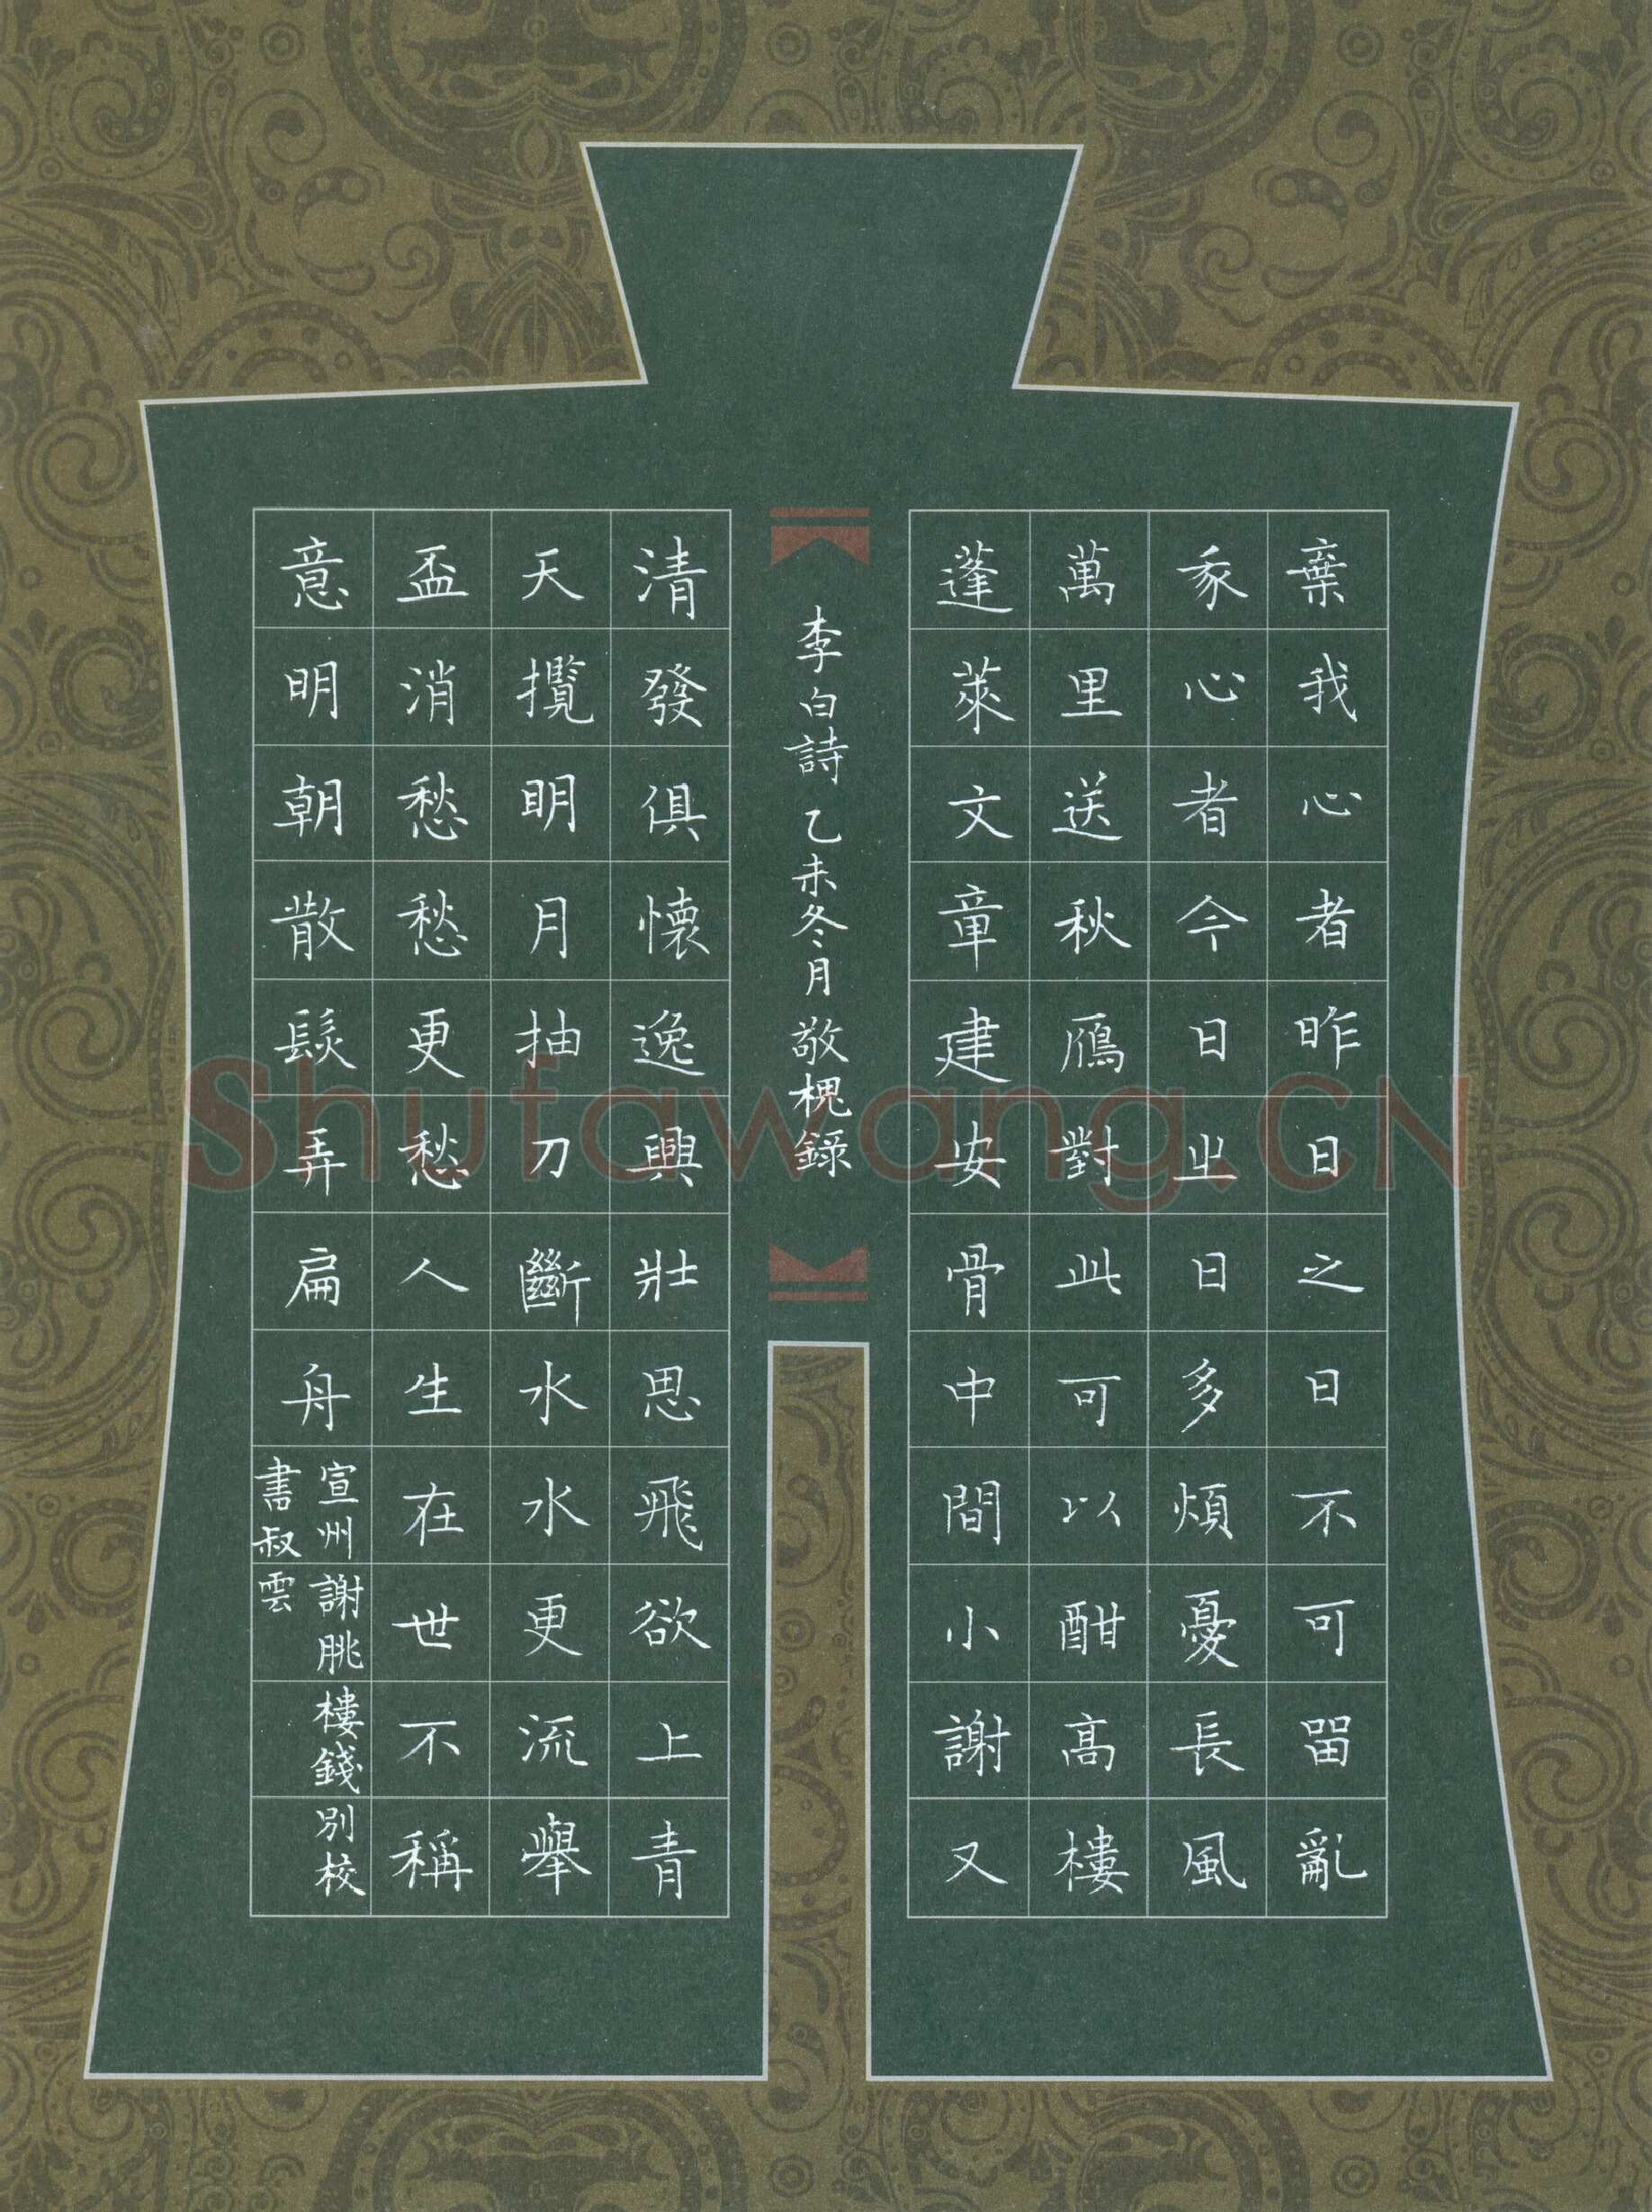 棄我心者昨日之日不可留亂
我心者今日之日多煩憂長風
萬里送秋鴈對此可以酣高樓
蓬萊文章建安骨中間小謝又
清發俱懷逸興壯思飛欲上青
天攬明月抽刀斷水水更流舉
盃消愁愁更愁人生在世不稱
意明朝散髮弄扁舟
宣州謝朓樓錢別校
書叔雲
李白詩 乙未冬月 敬槐錄
Shufawang.CN